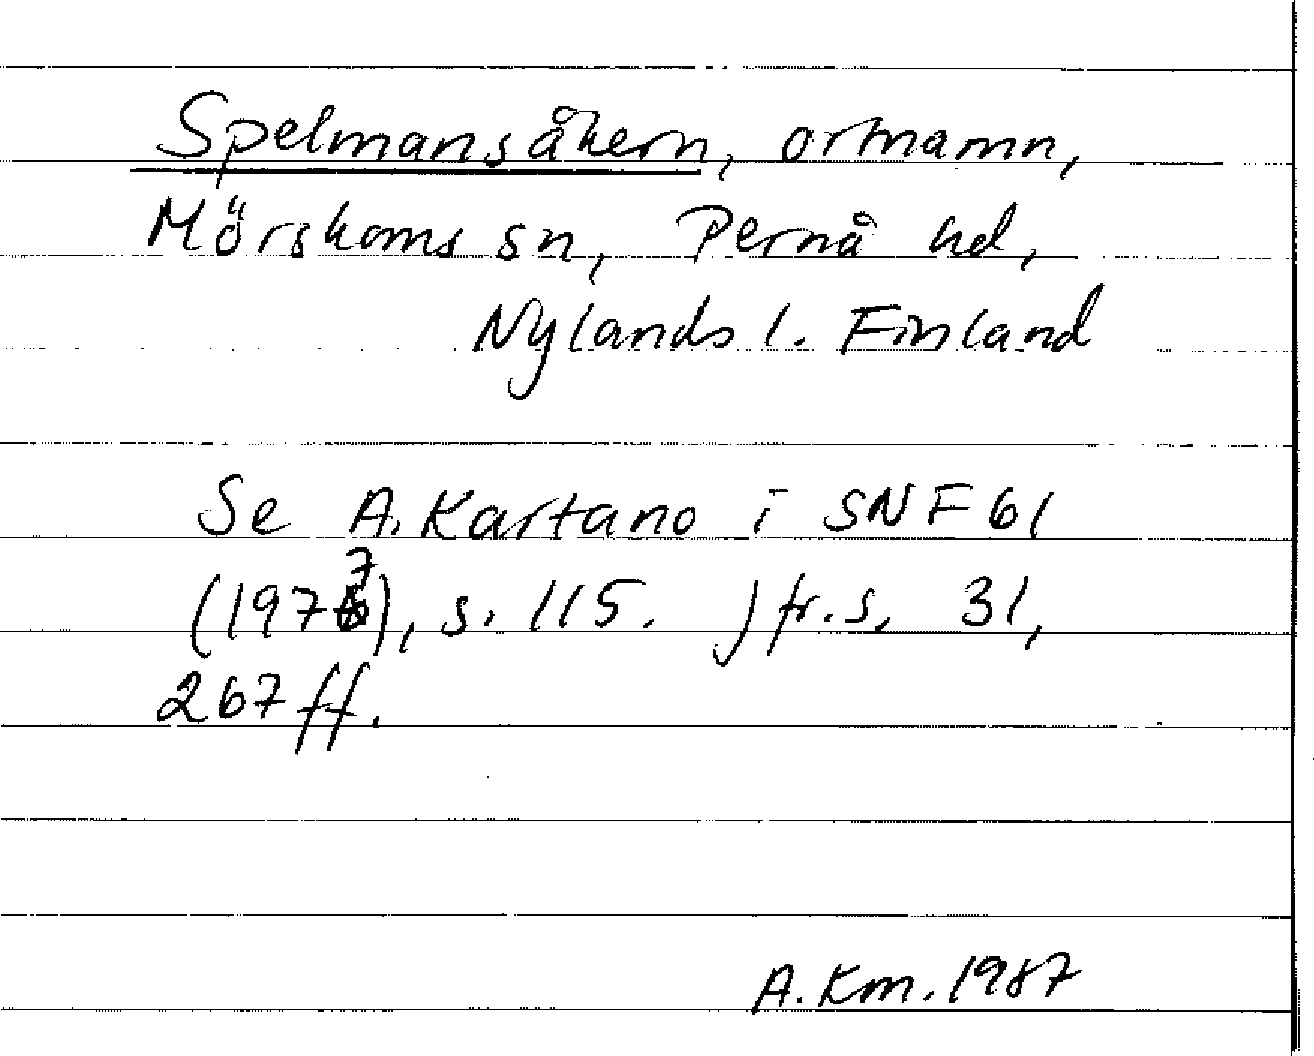 Spelmansåkern, ortnamn,
Mörskoms sn, Pernå hd,
Nylands l. Finland
Se A. Kartano i SNF 61
(1977), s. 115. Jfr. s. 31,
267 ff.
A. Km. 1987